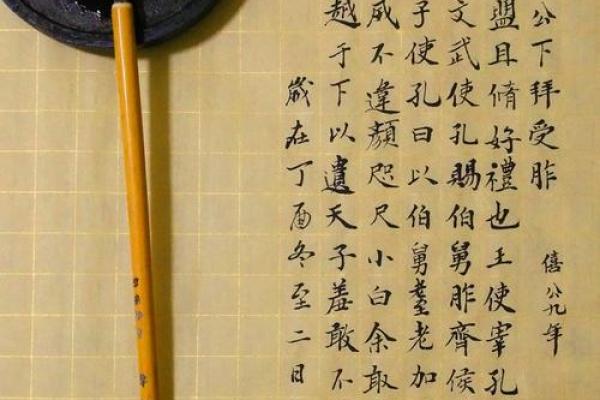 公下拜受胙 僖公九年
盟且脩好禮也王使宰孔
文武使孔賜伯舅胙齊侯
子使孔曰以伯舅耋老加
威不違顏咫尺小白余敢
越于下以遺天子羞敢不
歲在丁酉冬至二日